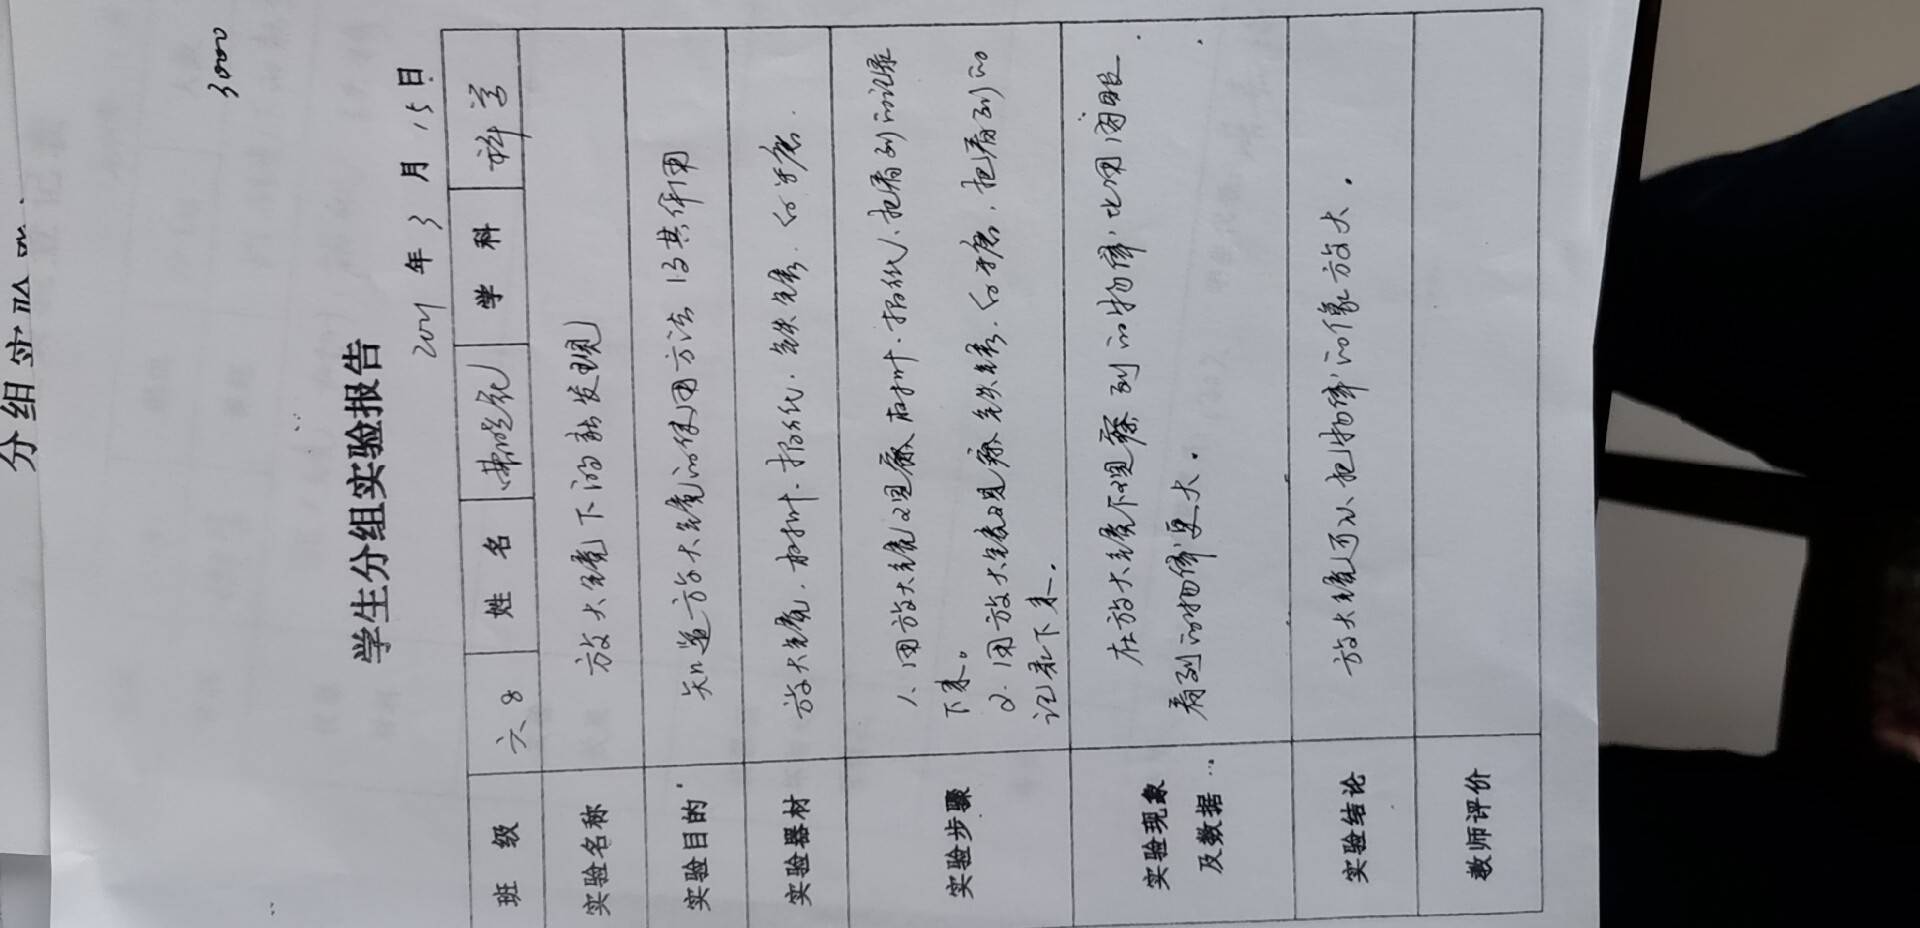 分组实验
3000
学生分组实验报告
2021年3月15日
班级 六8 姓名 学科 科学
实验名称 放大镜下的新发现
实验目的 知道放大镜的使用方法与其作用
实验器材 放大镜、树叶、报纸、铁锈、白糖.
实验步骤 1.用放大镜观察树叶、报纸、把看到的记录
下来。
2.用放大镜观察铁锈、白糖、把看到的
记录下来.
实验现象 在放大镜下观察到的物体,比用肉眼
及数据 看到的物体更大.
实验结论 放大镜可以把物体的像放大.
教师评价